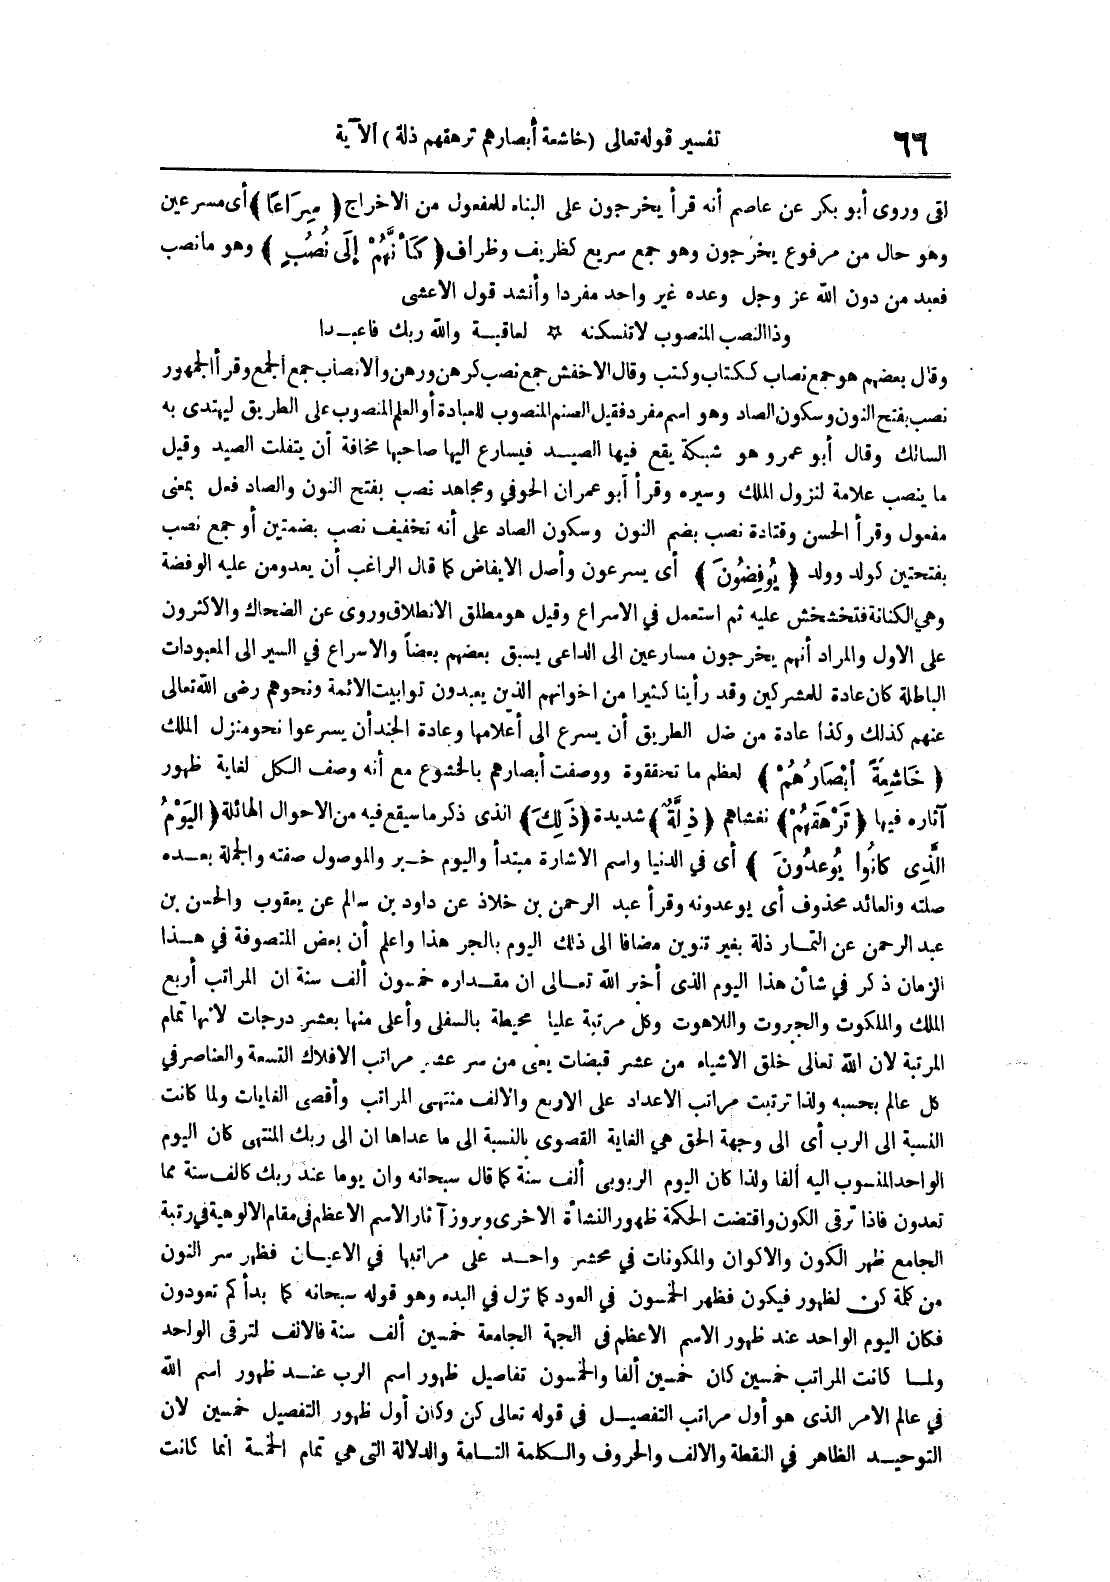 ٦٦ تفسير قوله تعالى (خاشعة أبصارهم ترهقهم ذلة) الآية
اقى وروى أبو بكر عن عاصم أنه قرأ يخرجون على البناء للمفعول من الاخراج ﴿ سِرَاعًا ﴾ أى مسرعين
وهو حال من مرفوع يخرجون وهو جمع سريع كظريف وظراف ﴿ كَأَنَّهُمْ إِلَى نُصُبٍ ﴾ وهو ما نصب
فعبد من دون الله عز وجل وعده غير واحد مفردا وأنشد قول الاعشى
وذا النصب المنصوب لاتنسكنه ☆ لعاقبة والله ربك فاعبدا
وقال بعضهم هو جمع نصاب ككتاب وكتب وقال الاخفش جمع نصب كرهن ورهن والانصاب جمع الجمع وقرأ الجمهور
نصب بفتح النون وسكون الصاد وهو اسم مفرد فقيل الصنم المنصوب للعبادة أو العلم المنصوب على الطريق ليهتدى به
السالك وقال أبو عمرو هو شبكة يقع فيها الصيد فيسارع اليها صاحبها مخافة أن يتفلت الصيد وقيل
ما ينصب علامة لنزول الملك وسيره وقرأ أبو عمران الحوفي ومجاهد نصب بفتح النون والصاد فعل بمعنى
مفعول وقرأ الحسن وقتادة نصب بضم النون وسكون الصاد على أنه تخفيف نصب بضمتين أو جمع نصب
بفتحتين كولد وولد ﴿ يُوفِضُونَ ﴾ أى يسرعون وأصل الايفاض كما قال الراغب أن يعدو من عليه الوفضة
وهي الكنانة فتخشخش عليه ثم استعمل في الاسراع وقيل هو مطلق الانطلاق وروى عن الضحاك والاكثرون
على الاول والمراد أنهم يخرجون مسارعين الى الداعى يسبق بعضهم بعضاً والاسراع في السير الى المعبودات
الباطلة كان عادة للمشركين وقد رأينا كثيرا من اخوانهم الذين يعبدون توابيت الائمة ونحوهم رضى الله تعالى
عنهم كذلك وكذا عادة من ضل الطريق أن يسرع الى أعلامها وعادة الجند أن يسرعوا نحو منزل الملك
﴿ خَاشِعَةً أَبْصَارُهُمْ ﴾ لعظم ما تحققوه ووصفت أبصارهم بالخشوع مع أنه وصف الكل لغاية ظهور
آثاره فيها ﴿ تَرْهَقُهُمْ ﴾ تغشاهم ﴿ ذِلَّةٌ ﴾ شديدة ﴿ ذَلِكَ ﴾ الذى ذكر ما سيقع فيه من الاحوال الهائلة ﴿ اليَوْمُ
الَّذِى كانُوا يُوعدُونَ ﴾ أى في الدنيا واسم الاشارة مبتدأ واليوم خبر والموصول صفته والجملة بعده
صلته والعائد محذوف أى يوعدونه وقرأ عبد الرحمن بن خلاذ عن داود بن سالم عن يعقوب والحسن بن
عبد الرحمن عن التمار ذلة بغير تنوين مضافا الى ذلك اليوم بالجر هذا واعلم أن بعض المتصوفة في هذا
الزمان ذكر في شأن هذا اليوم الذى أخبر الله تعالى ان مقداره خمسون ألف سنة ان المراتب أربع
الملك والملكوت والجبروت واللاهوت وكل مرتبة عليا محيطة بالسفلى وأعلى منها بعشر درجات لانها تمام
المرتبة لان الله تعالى خلق الاشياء من عشر قبضات يعنى من سر عشر مراتب الافلاك التسعة والعناصر في
كل عالم بحسبه ولذا ترتبت مراتب الاعداد على الاربع والالف منتهى المراتب وأقصى الغايات ولما كانت
النسبة الى الرب أى الى وجهة الحق هي الغاية القصوى بالنسبة الى ما عداها ان الى ربك المنتهى كان اليوم
الواحد المنسوب اليه ألفا ولذا كان اليوم الربوبى ألف سنة كما قال سبحانه وان يوما عند ربك كالف سنة مما
تعدون فاذا ترقى الكون واقتضت الحكمة ظهور النشأة الاخرى وبروز آثار الاسم الاعظم في مقام الالوهية في رتبة
الجامع ظهر الكون والاكوان والمكونات في محشر واحد على مراتبها في الاعيان فظهر سر النون
من كلمة كن لظهور فيكون فظهر الخمسون في العود كما نزل في البدء وهو قوله سبحانه كما بدأكم تعودون
فكان اليوم الواحد عند ظهور الاسم الاعظم فى الجهة الجامعة خمسين ألف سنة فالالف لترقى الواحد
ولما كانت المراتب خمسين كان خمسين ألفا والخمسون تفاصيل ظهور اسم الرب عند ظهور اسم الله
في عالم الامر الذى هو أول مراتب التفصيل في قوله تعالى كن وكان أول ظهور التفصيل خمسين لان
التوحيد الظاهر في النقطة والالف والحروف والكلمة التامة والدلالة التى هي تمام الخمسة انما كانت